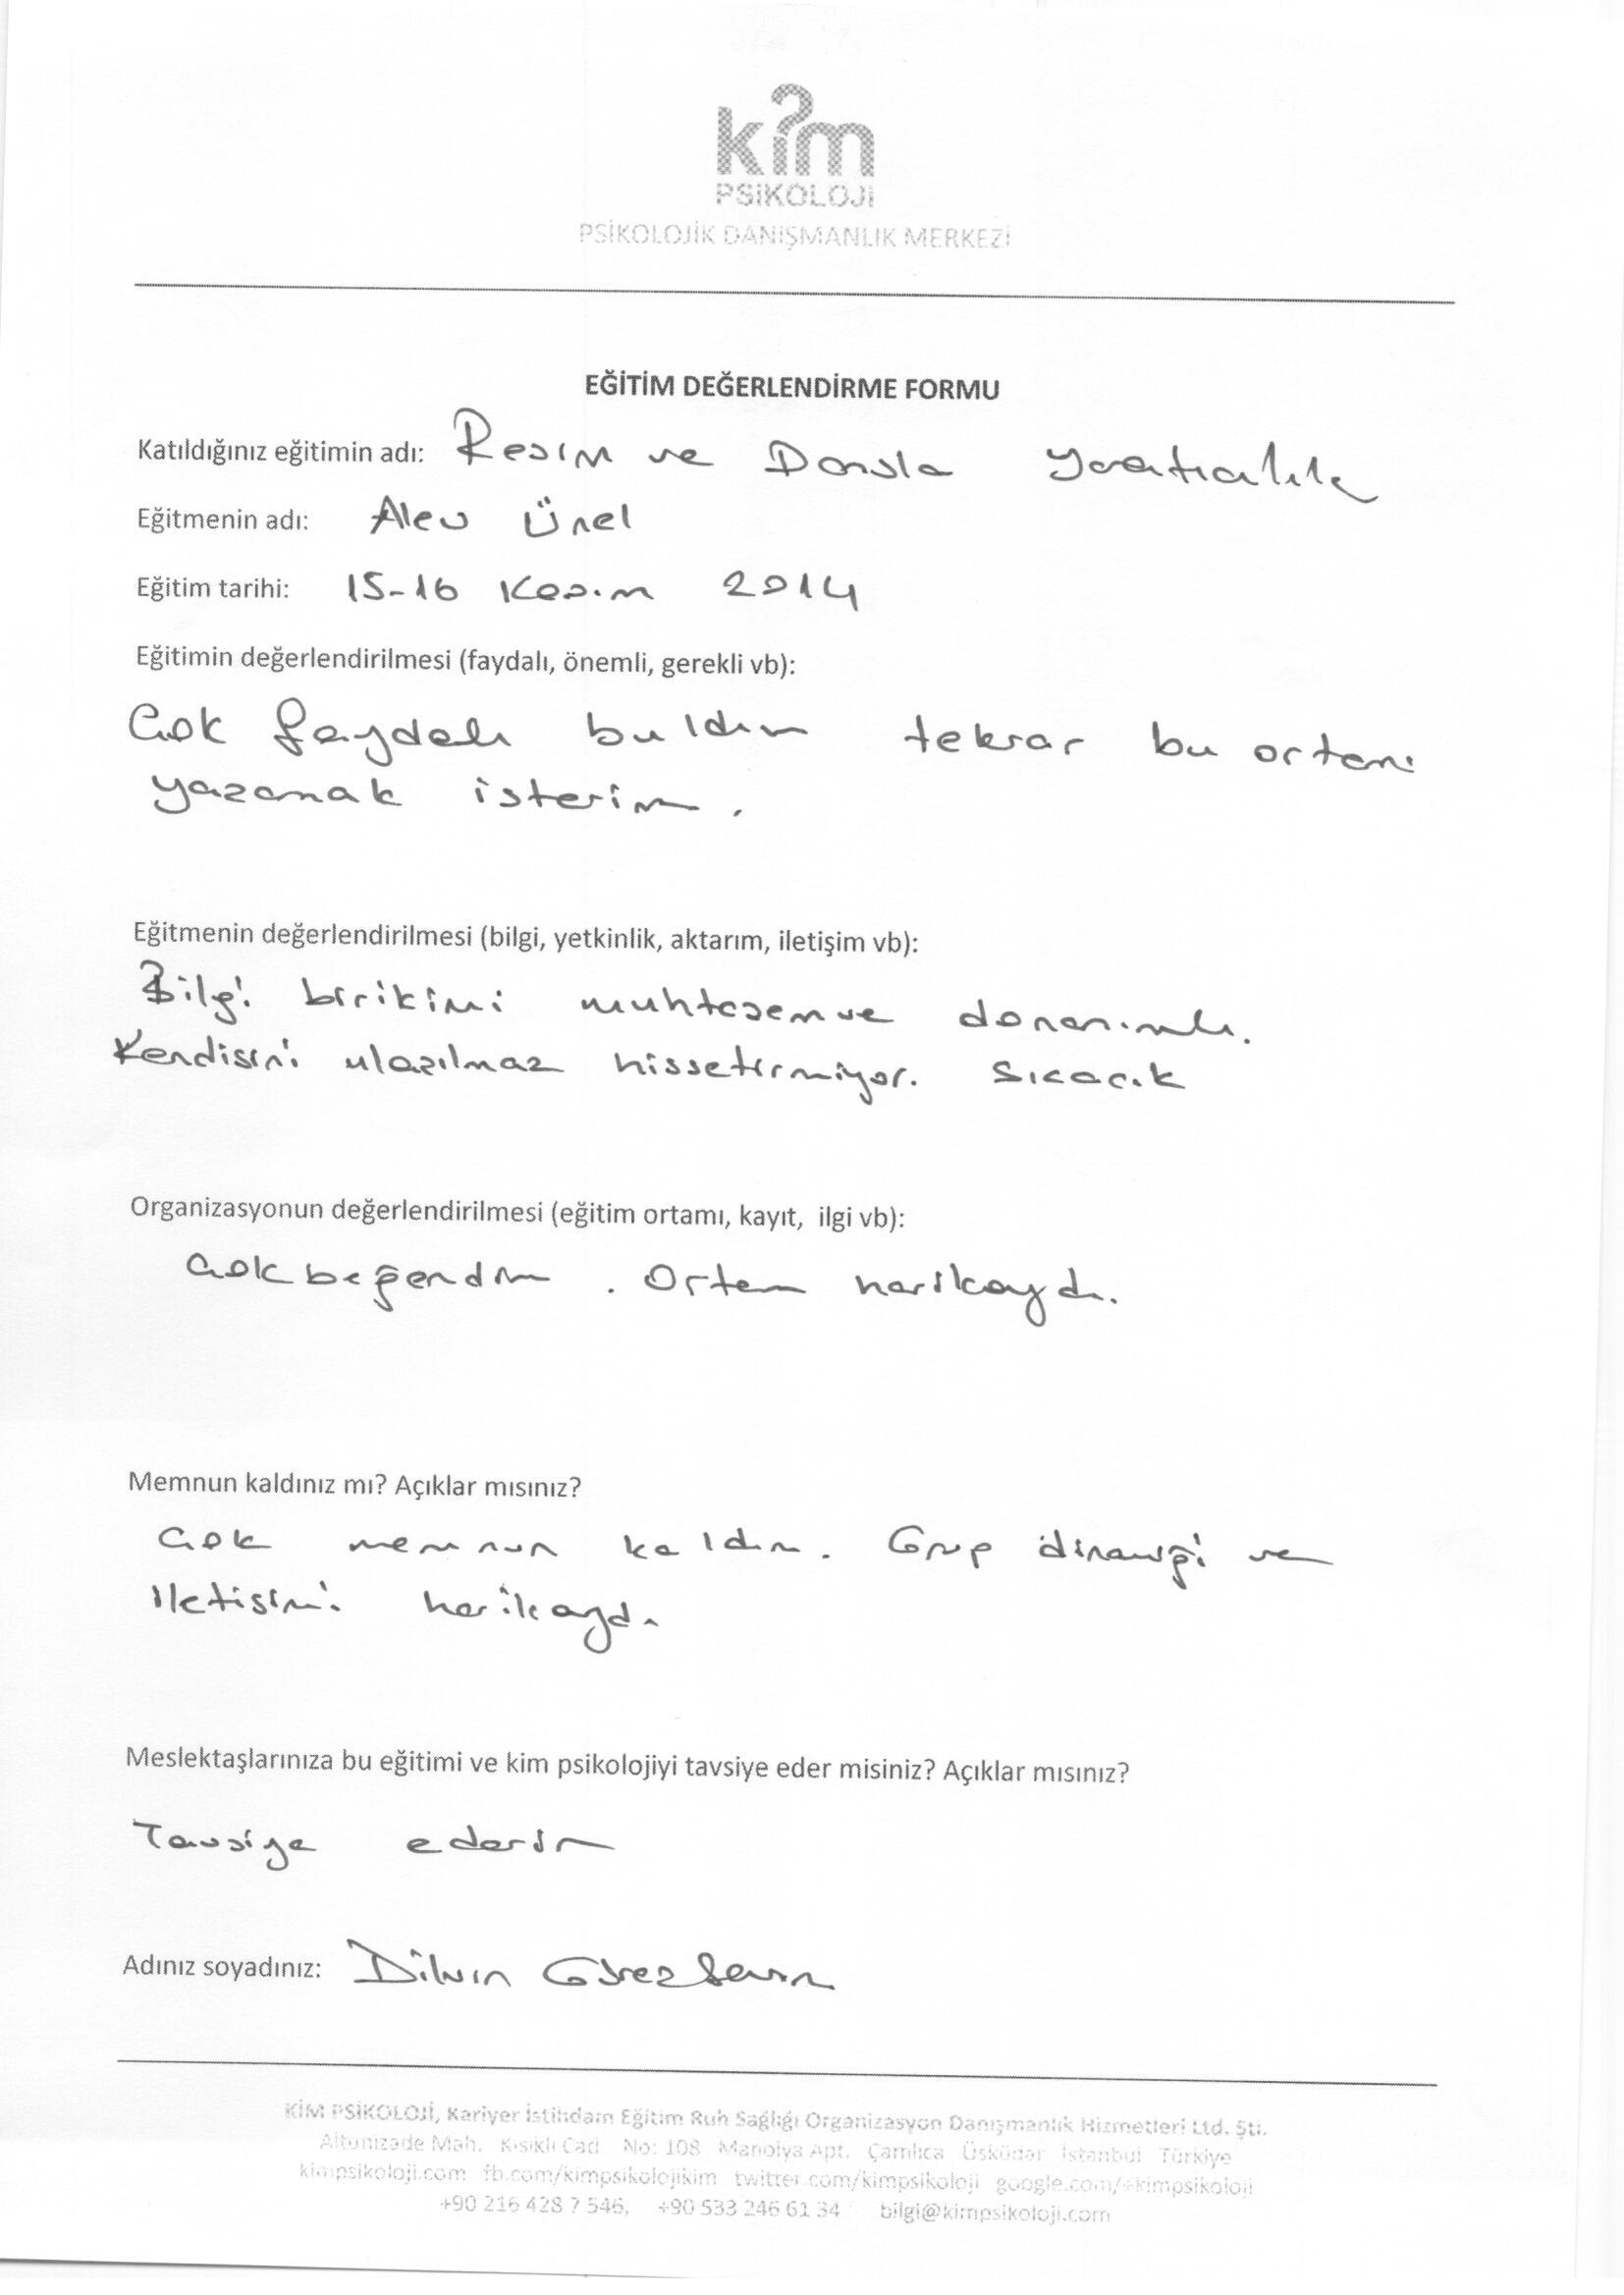 kim
PSİKOLOJİ
PSİKOLOJİK DANIŞMANLIK MERKEZİ
EĞİTİM DEĞERLENDİRME FORMU
Katıldığınız eğitimin adı: Resim ve Dansla yaratıcılık
Eğitmenin adı: Alev Ünel
Eğitim tarihi: 15-16 Kasım 2014
Eğitimin değerlendirilmesi (faydalı, önemli, gerekli vb):
Çok faydalı buldum tekrar bu ortamı
yazamak isterim.
Eğitmenin değerlendirilmesi (bilgi, yetkinlik, aktarım, iletişim vb):
Bilgi birikimi muhtesem ve donanımlı.
Kendisini ulaşılmaz hissetirmiyor. Sıcacık
Organizasyonun değerlendirilmesi (eğitim ortamı, kayıt, ilgi vb):
Çok beğendim. Ortam harikaydı.
Memnun kaldınız mı? Açıklar mısınız?
Çok memnun kaldım. Grup dinamiği ve
iletisimi harikaydı
Meslektaşlarınıza bu eğitimi ve kim psikolojiyi tavsiye eder misiniz? Açıklar mısınız?
Tavsiye ederim
Adınız soyadınız: Dilvin
KİM PSİKOLOJİ, Kariyer İstihdam Eğitim Ruh Sağlığı Organizasyon Danışmanlık Hizmetleri Ltd. Şti.
Altunizade Mah. Kısıklı Cad No: 108 Manolya Apt. Çamlıca Üsküdar İstanbul Türkiye
kimpsikoloji.com fb.com/kimpsikolojikim twitter.com/kimpsikoloji google.com/+kimpsikoloji
+90 216 428 7 546, +90 533 246 61 34 bilgi@kimpsikoloji.com